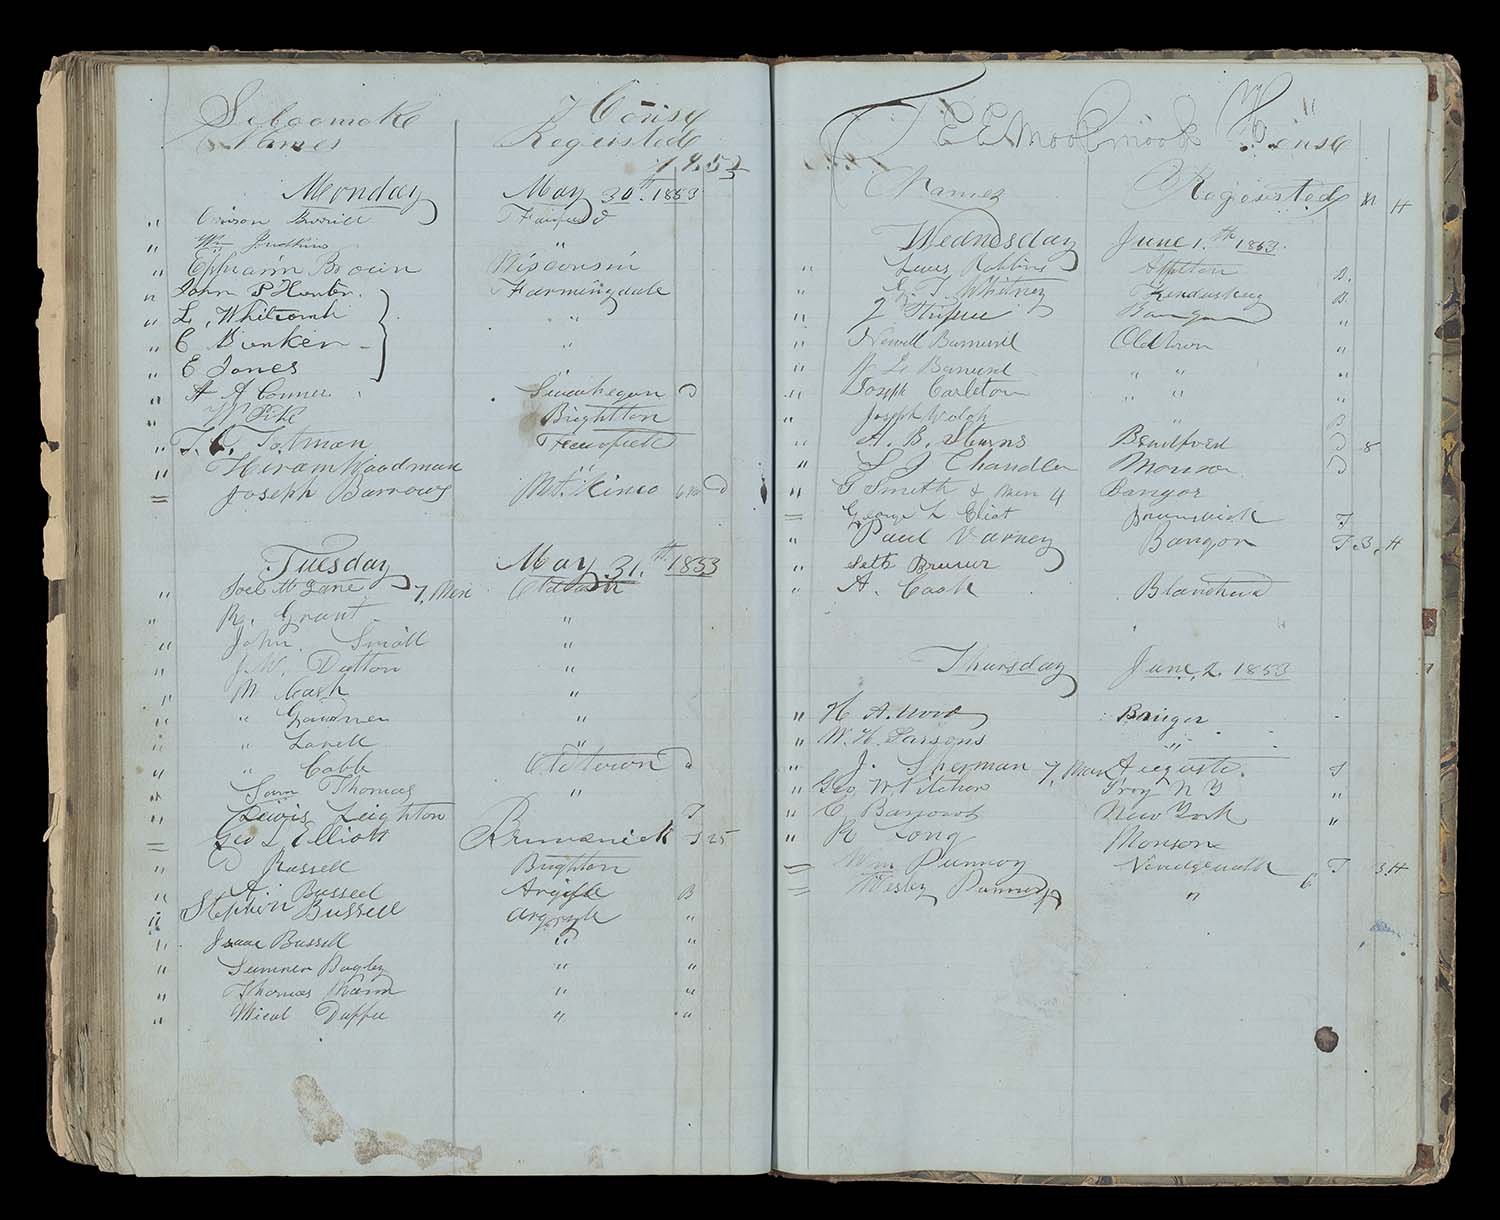 Seboomoke House
Names Registed
1853
Monday May 30th 1853
" Orison Burrill Fairfield
" Wm Judkins "
" Ephraim Brown Wisconsin
" John P Hunter Farmingdale
" L. Whitcomb "
" C Bunker "
" E Jones
" A A Conner D
" W Pike Brighton
" T. C. Tatman
" Hiram Woodman "
= Joseph Barrows Mt. Kineo D
Tuesday May 31.th 1853
" Joel McLane 7, Men Oldtown
" R. Grant "
" John. Small "
" J. W. Dutton "
" M Cash "
" " Gardner
" " Lovell "
" " Cobb Oldtown
" Sam Thomas "
" Lewis Leighton T
= Geo L Elliott Brunswick 25
" Russell Brighton
" A. Bussell Argyle B
" Stephen Bussell Argyle "
" Isaac Bussell " "
" Sumner Bagley " "
" Thomas Mann " "
" Micah " "
TEEMookmook House
Names Registed M H
Wednesday June 1.th 1853.
" Lewis Robbins B.
" G. T. Whitney Kenduskeag B
" J Bangor "
" Newell Oldtown "
" " " "
" Joseph Carleton " " "
Joseph Walsh " B
" A. B. Stearns D 8
" S J Chandler Monson D
" G Smith & Men 4 Bangor
= George L Eliot Brunswick T
" Paul Varney Bangor T. 3, H
" Seth
" A. Cook Blanchard
Thursday June. 2. 1853
" H A. Wood Bangor
" W. H. Parsons "
" J. Sherman 7, Men Augusta. S
" Geo W Troy N Y "
" C Barrows New York "
" R Long Monson
= Wm T 3 H
= Wesley " 6